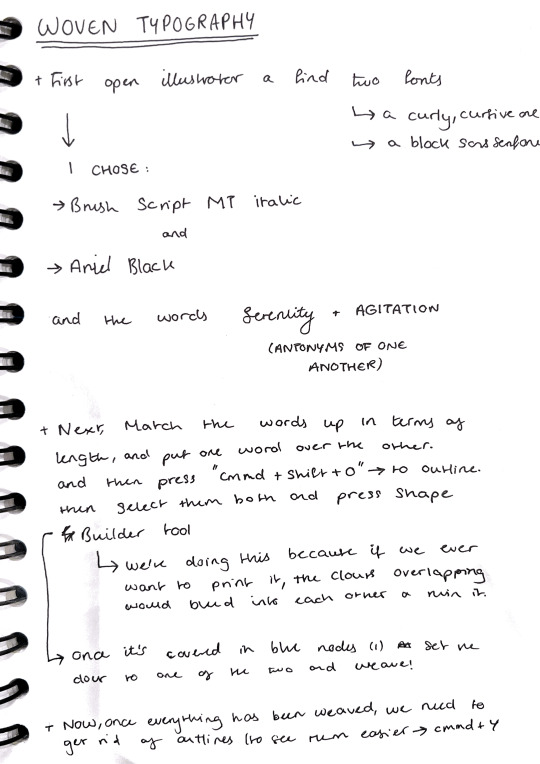 WOVEN TYPOGRAPHY
+ First open illustrator a find two fonts
↳ a curly, cursive one
↳ a block sans serif one
↓
I CHOSE:
→ Brush Script MT italic
and
→ Ariel Black
and the words Serenity + AGITATION
(ANTONYMS OF ONE
ANOTHER)
+ Next, Match the words up in terms of
length, and put one word over the other.
and then press "cmmd + Shift + O" → to outline.
then select them both and press Shape
Builder tool
↳ we're doing this because if we ever
want to print it, the colours overlapping
would bleed into each other a ruin it.
↳ once it's covered in blue nodes (1) set the
colour to one of the two and weave!
+ Now, once everything has been weaved, we need to
get rid of outlines (to see them easier → cmmd + Y